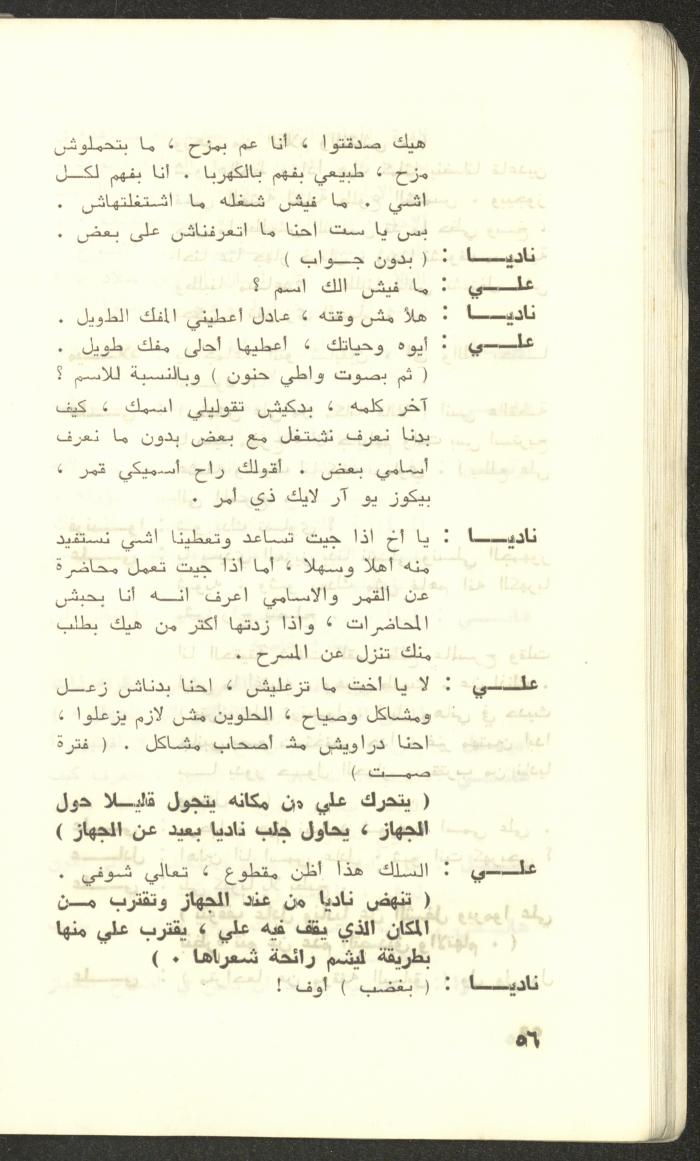 هيك صدقتوا ، أنا عم بمزح ، ما بتحملوش
مزح ، طبيعي بفهم بالكهربا . أنا بفهم لكل
اشي . ما فيش شغله ما اشتغلتهاش .
بس يا ست احنا ما اتعرفناش على بعض .
ناديا : ( بدون جواب )
علي : ما فيش الك اسم ؟
ناديا : هلأ مش وقته ، عادل أعطيني المفك الطويل .
علي : أيوه وحياتك ، أعطيها أحلى مفك طويل .
( ثم بصوت واطي حنون ) وبالنسبة للاسم ؟
آخر كلمه ، بدكيش تقوليلي اسمك ، كيف
بدنا نعرف نشتغل مع بعض بدون ما نعرف
أسامي بعض . أقولك راح أسميكي قمر ،
بيكوز يو آر لايك ذي أمر .
ناديا : يا أخ اذا جيت تساعد وتعطينا اشي نستفيد
منه أهلا وسهلا ، أما اذا جيت تعمل محاضرة
عن القمر والاسامي اعرف انه أنا بحبش
المحاضرات ، واذا زدتها أكتر من هيك بطلب
منك تنزل عن المسرح .
علي : لا يا أخت ما تزعليش ، احنا بدناش زعل
ومشاكل وصياح ، الحلوين مش لازم يزعلوا ،
احنا دراويش مش أصحاب مشاكل . ( فترة
صمت )
( يتحرك علي من مكانه يتجول قليلا حول
الجهاز ، يحاول جلب ناديا بعيد عن الجهاز )
علي : السلك هذا أظن مقطوع ، تعالي شوفي .
( تنهض ناديا من عند الجهاز وتقترب من
المكان الذي يقف فيه علي ، يقترب علي منها
بطريقة ليشم رائحة شعراها . )
ناديا : ( بغضب ) أوف !
٥٦